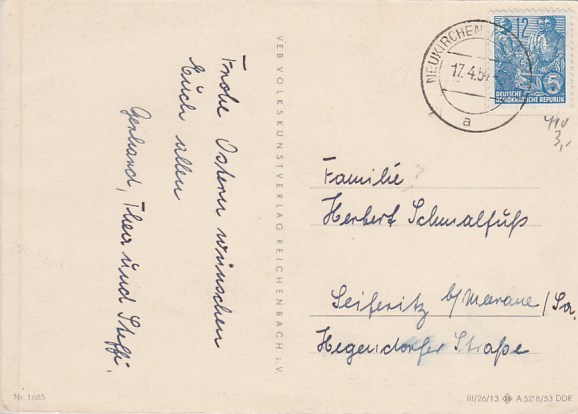 Frohe Ostern wünschen
Euch allen
Gerhard, Thea und Steffi.
VEB VOLKSKUNSTVERLAG REICHENBACH i.V.
NEUKIRCHEN
17.4.54
a
12
5
DEUTSCHE
DEMOKRATISCHE REPUBLIK
3,-
Familie
Herbert Schmalfuß
Seiferitz b/Meerane/Sa.
Hegendorfer Straße
Nr. 1685
III/26/13 A 5218/53 DDR